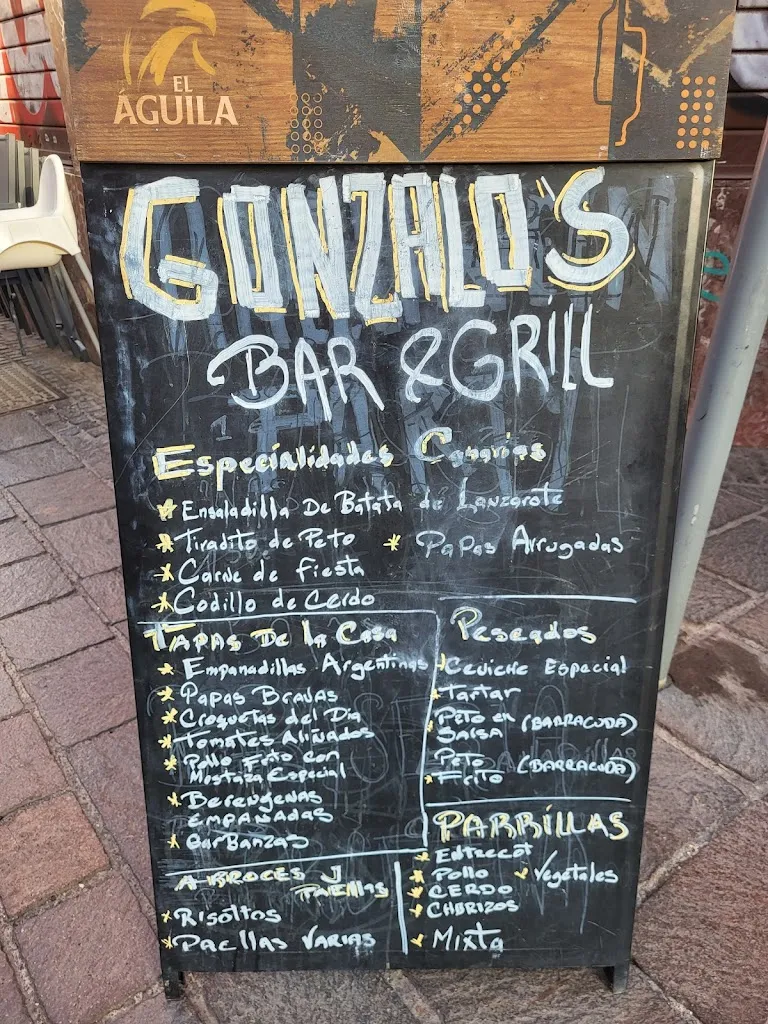 EL
ÁGUILA
GONZALO'S
BAR & GRILL
Especialidades Canarias
* Ensaladilla De Batata de Lanzarote
* Tiradito de Peto * Papas Arrugadas
* Carne de fiesta
* Codillo de Cerdo
TAPAS De la Casa
* Empanadillas Argentinas
* Papas Bravas
* Croquetas del Dia
* Tomates Aliñados
* Pollo Frito con
Mostaza Especial
* Berengenas
EMPANADAS
* Garbanzas
Pescados
* Ceviche Especial
* Tartar
* Peto en (BARRACUDA)
SALSA
Peto (BARRACUDA)
* Frito
ARROCES y
PAELLAS
* Risottos
* Paellas Varias
PARRILLAS
* Entrecot
* Pollo * Vegetales
* CERDO
* CHORIZOS
* Mixta